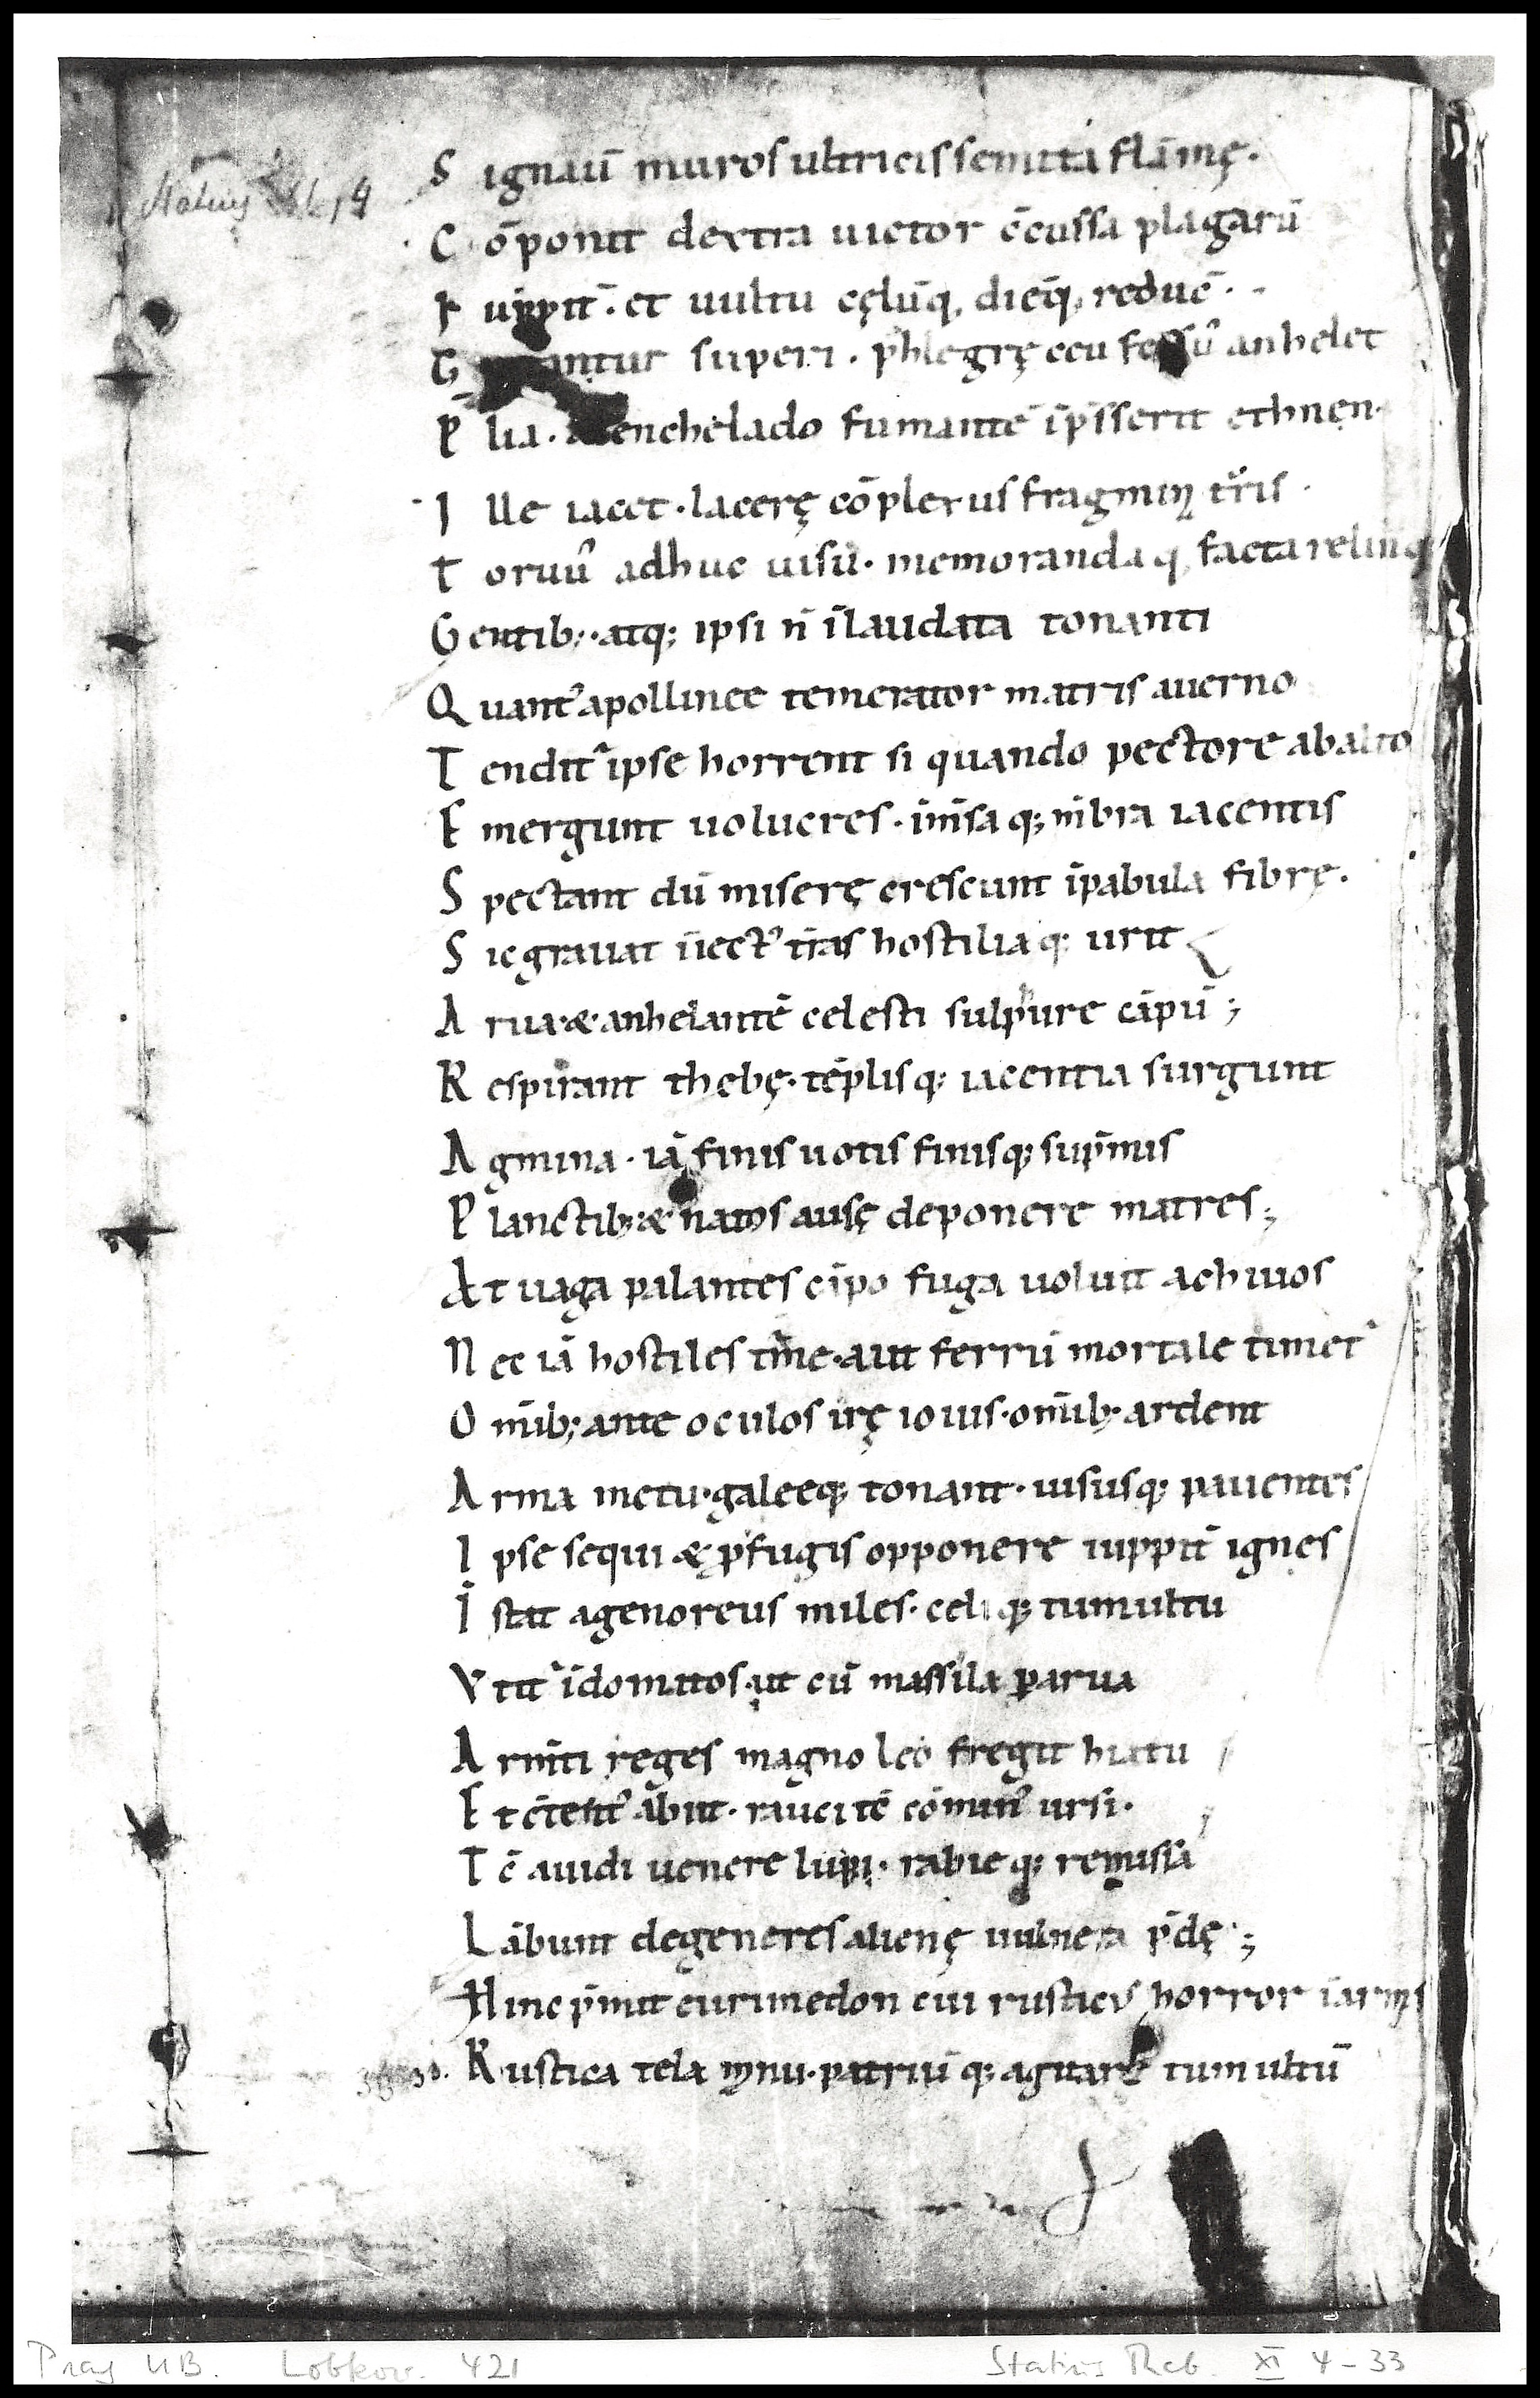 Statius
S ignaũ muros ultricis semita flãmę.
C õponit dextra uictor cõcussa plagarũ
I uppit̃. et uultu cęlũq; dieq; reduc̃.
G antur superi. phlegrę ceu fessũ anhelet
P̃ lia. enchelado fumantẽ ĩp̃sserit ethnen.
I lle iacet. lacerę cõplexus fragmin̄ t̃ris.
T oruũ adhuc uisũ. memorandaq; facta relinq̃
G entib;. atq; ipsi ñ ĩlaudata tonanti
Q uant᷒ apollinee temerator matris auerno
T endit᷑ ipse horrent si quando pectore ab alto
E mergunt uolucres. ĩm̃saq; m̃bra iacentis
S pectant dũ miserę crescunt ĩpabula fibrę.
S ic grauat ĩiect᷒ t̃ras hostiliaq; urit
A rua. & anhelantẽ celesti sulphure cãpũ;
R espirant thebę. tẽplisq; iacentia surgunt
A gmina. iã finis uotis finisq; sup̃mis
P lanctib;. & natos ausę deponere matres;
At uaga palantes cãpo fuga uoluit achiuos
N ec iã hostiles t̃me. aut ferrũ mortale timet᷑
O m̃ib; ante oculos irę iouis. om̃ib; ardent
A rma metu. galeeq; tonant. uisusq; pauentes
I pse sequi & p̃fugis opponere iuppit̃ ignes
Ĩ stat agenoreus miles. celiq; tumultu
V tit᷑ ĩdomitos. ut cũ massila p̱arua
A rm̃ti reges magno leo fregit hiatu
E t cõtent᷒ ãbiit. rauci tẽ cõmin᷒ ursi.
T ẽ auidi uenere lupi. rabieq; remissã
L ãbunt degeneres alienę uulnera p̃dę;
Hinc p̃mit eurimedon cui rustic᷒ horror ĩarmis
R ustica tela manu. patriũq; agitare tumultũ
Prag UB. Lobkow. 421
Statius Theb. XI 4-33